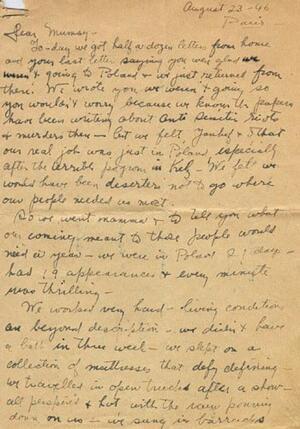 August 23-46
Paris
Dear Mumsy-
To-day we got half a dozen letters from home
and your last letter saying you were glad we
weren't going to Poland & we just returned from
there! We wrote you we weren't going so
you wouldn't worry because we know the papers
have been writing about Anti Semitic riots
& murders there - but we felt, Yankel & I that
our real job was just in Poland especially
after the terrible pogrom in Kelz - We felt we
would have been deserters not to go where
our people needed us most.
So we went mamma & to tell you what
our coming meant to those people would
need a year - we were in Poland 21 days -
had 19 appearances & every minute
was thrilling -
We worked very hard - living conditions
are beyond description - we didn't have
a bath in three weeks - we slept on a
collection of mattresses that defy defining -
we travelled in open trucks after a show -
all perspired & hot with the rain pouring
down on us - we sang in barracks